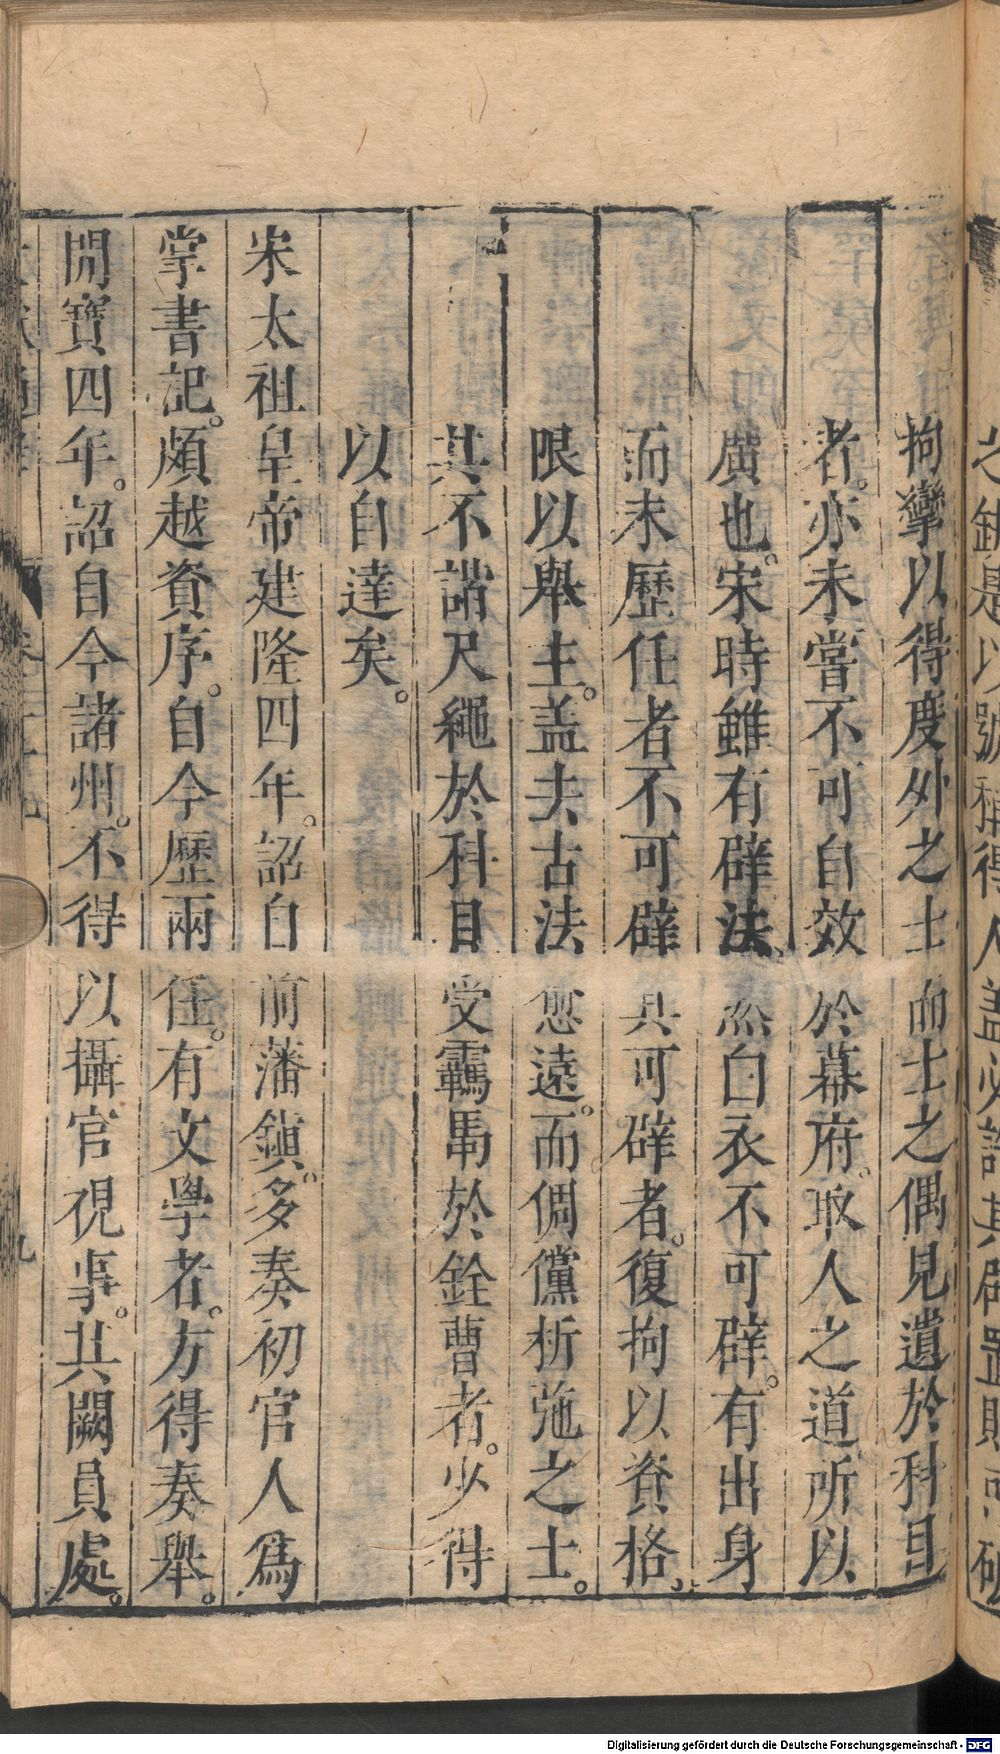 拘攣以得度外之士而士之偶見遺於科目
者。亦未嘗不可自效於幕府。取人之道所以
廣也。宋時雖有辟法、然白衣不可辟。有出身
而未歷任者不可辟其可辟者。復拘以資格。
限以舉主。盖去古法愈遠。而倜儻斥弛之士。
其不諧尺繩於科目受羈馽於銓曹者。少得
以自達矣。
宋太祖皇帝建隆四年。詔自前藩鎮。多奏初官人爲
掌書記。頗越資序。自今歷兩任。有文學者。方得奏舉。
開寶四年。詔自今諸州。不得以攝官視事。其闕員處。
之
是以號稱得人蓋必
其辟置
Digitalisierung gefördert durch die Deutsche Forschungsgemeinschaft - DFG